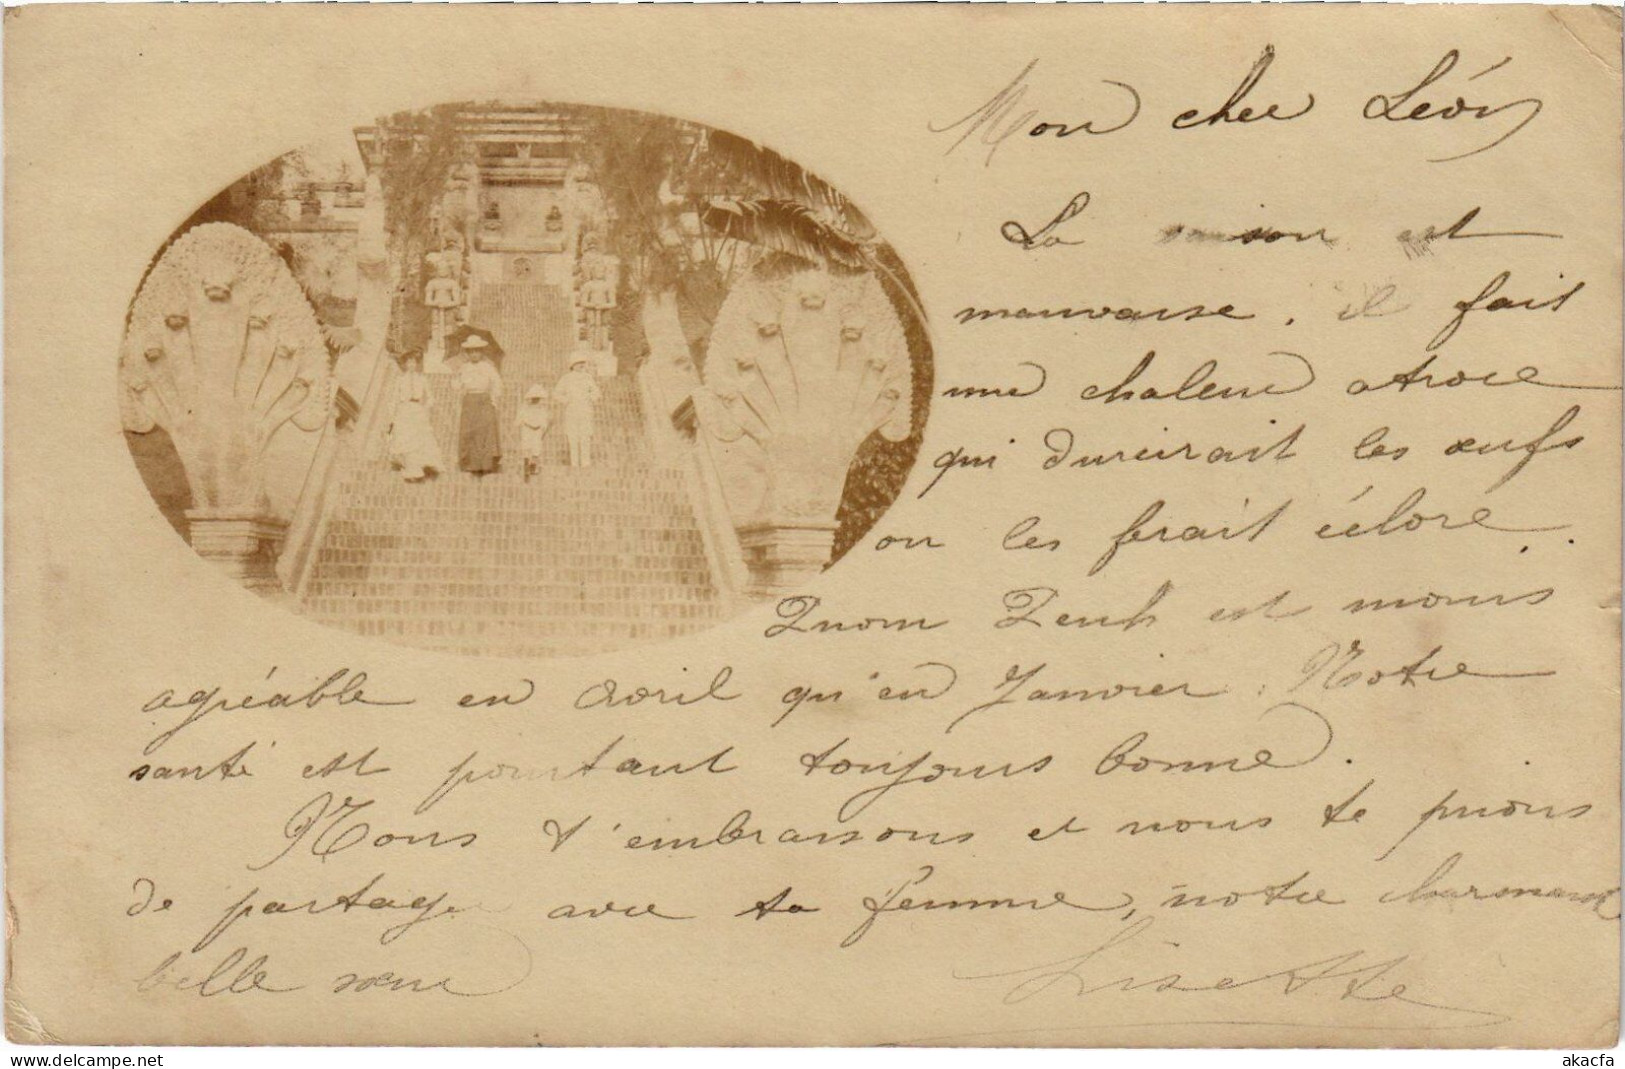 Mon cher Léon
La saison est
mauvaise, il fait
une chaleur atroce
qui durcirait les œufs
ou les ferait éclore.
Pnom Penh est moins
agréable en Avril qu'en Janvier. Notre
santé est pourtant toujours bonne.
Nous t'embrassons et nous te prions
de partager avec ta femme, notre charmante
belle sœur
Lisette
delcampe.net
akacfa